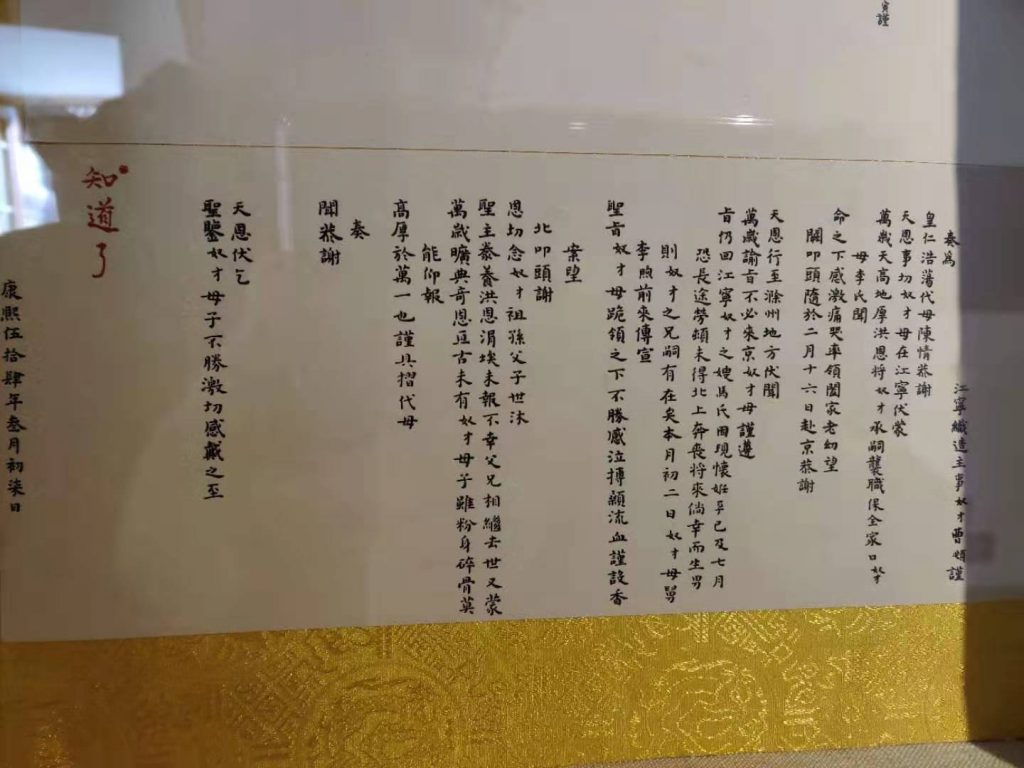 賓謹
江寧織造主事奴才曹頫謹
奏為
皇仁浩蕩代母陳情恭謝
天恩事切奴才母在江寧伏蒙
萬歲天高地厚洪恩將奴才承嗣襲職保全家口奴才
母李氏聞
命之下感激痛哭率領闔家老幼望
闕叩頭隨於二月十六日赴京恭謝
天恩行至滁州地方伏聞
萬歲諭旨不必來京奴才母謹遵
旨仍回江寧奴才之嫂馬氏因現懷姙孕已及七月
恐長途勞頓未得北上奔喪將來倘幸而生男
則奴才之兄嗣有在矣本月初二日奴才母舅
李煦前來傳宣
聖旨奴才母跪領之下不勝感泣搏顙流血謹設香
案望
北叩頭謝
恩切念奴才祖孫父子世沐
聖主豢養洪恩涓埃未報不幸父兄相繼去世又蒙
萬歲曠典奇恩亘古未有奴才母子雖粉身碎骨莫
能仰報
高厚於萬一也謹具摺代母
奏
聞恭謝
天恩伏乞
聖鑒奴才母子不勝激切感戴之至
知道了
康熙伍拾肆年叁月初柒日